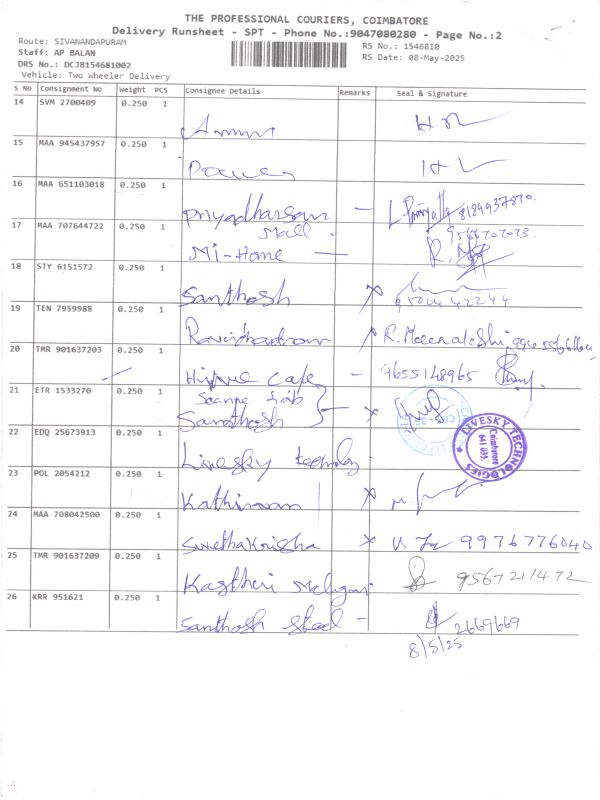 THE PROFESSIONAL COURIERS, COIMBATORE
Delivery Runsheet - SPT - Phone No.:9047080280 - Page No.:2
Route: SIVANANDAPURAM
RS No.: 1546810
Staff: AP BALAN
RS Date: 08-May-2025
DRS No.: DCJB154681002
Vehicle: Two Wheeler Delivery
S No Consignment No Weight PCS Consignee Details Remarks Seal & Signature
14 SVM 2700409 0.250 1
15 MAA 945437957 0.250 1
16 MAA 651103018 0.250 1
Priyadharsan
17 MAA 707644722 0.250 1 Mall
Mi-Home
18 STY 6151572 0.250 1
Santhosh
19 TEN 7959988 0.250 1
R. Meenakshi
20 TMR 901637203 0.250 1
Cafe - 9655148965
21 ETR 1533270 0.250 1
Santhosh
22 EDQ 25673913 0.250 1
Livesky
LIVESKY TECHNOLOGIES
Coimbatore
641 035.
23 POL 2054212 0.250 1
Kathiravan
24 MAA 708042500 0.250 1
9976776040
25 TMR 901637209 0.250 1
9567211472
26 KRR 951621 0.250 1
Santhosh Steel - 2669669
8/5/25